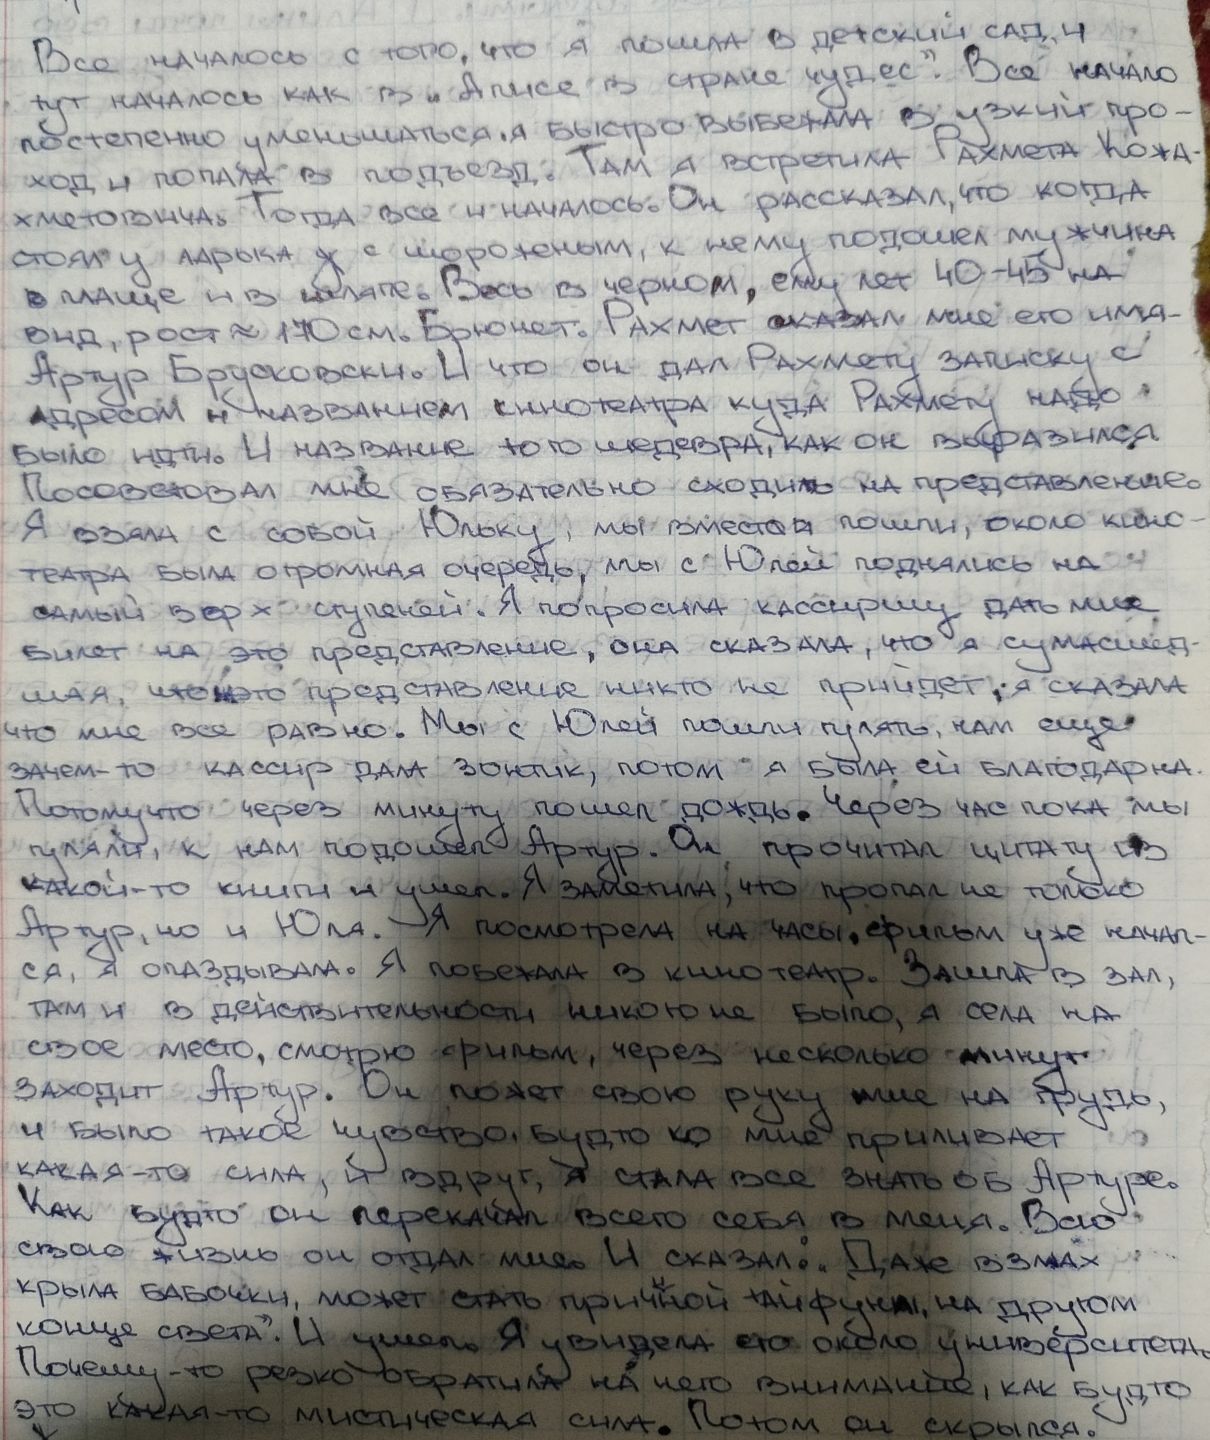 Все началось с того, что я пошла в детский сад, и
тут началось как в „Алисе в стране чудес". Все начало
постепенно уменьшаться. я быстро выбежала в узкий про-
ход и попала в подъезд. Там я встретила Рахмета Кожа-
хметовича. Тогда все и началось. Он рассказал, что когда
стоял у ларька с мороженым, к нему подошел мужчина
в плаще и в шляпе. Весь в черном, ему лет 40-45 на
вид, рост ≈ 170 см. Брюнет. Рахмет сказал мне его имя -
Артур Брусковски. И что он дал Рахмету записку с
адресом и названием кинотеатра куда Рахмету надо
было идти. И название того шедевра, как он выразился
Посоветовал мне обязательно сходить на представление.
Я взяла с собой Юльку, мы вместе пошли, около кино-
театра была огромная очередь, мы с Юлей поднялись на
самый верх ступеней. Я попросила кассиршу дать мне
билет на это представление, она сказала, что я сумасшед-
шая, что на это представление никто не прийдет, я сказала
что мне все равно. Мы с Юлей пошли гулять, нам еще
зачем-то кассир дала зонтик, потом я была ей благодарна.
Потомучто через минуту пошел дождь. Через час пока мы
гуляли, к нам подошел Артур. Он прочитал цитату из
какой-то книги и ушел. Я заметила, что пропал не только
Артур, но и Юля. Я посмотрела на часы, фильм уже начал-
ся, я опаздывала. Я побежала в кинотеатр. Зашла в зал,
там и в действительности никого не было, я села на
свое место, смотрю фильм, через несколько минут
заходит Артур. Он ложет свою руку мне на грудь,
и было такое чувство, будто ко мне приливает
какая-то сила, и вдруг, я стала все знать об Артуре.
Как будто он перекачал всего себя в меня. Всю
свою жизнь он отдал мне. И сказал: „Даже взмах
крыла бабочки, может стать причиной тайфуна, на другом
конце света". И ушел. Я увидела его около университета.
Почему-то резко обратила на него внимание, как будто
это какая-то мистическая сила. Потом он скрылся.